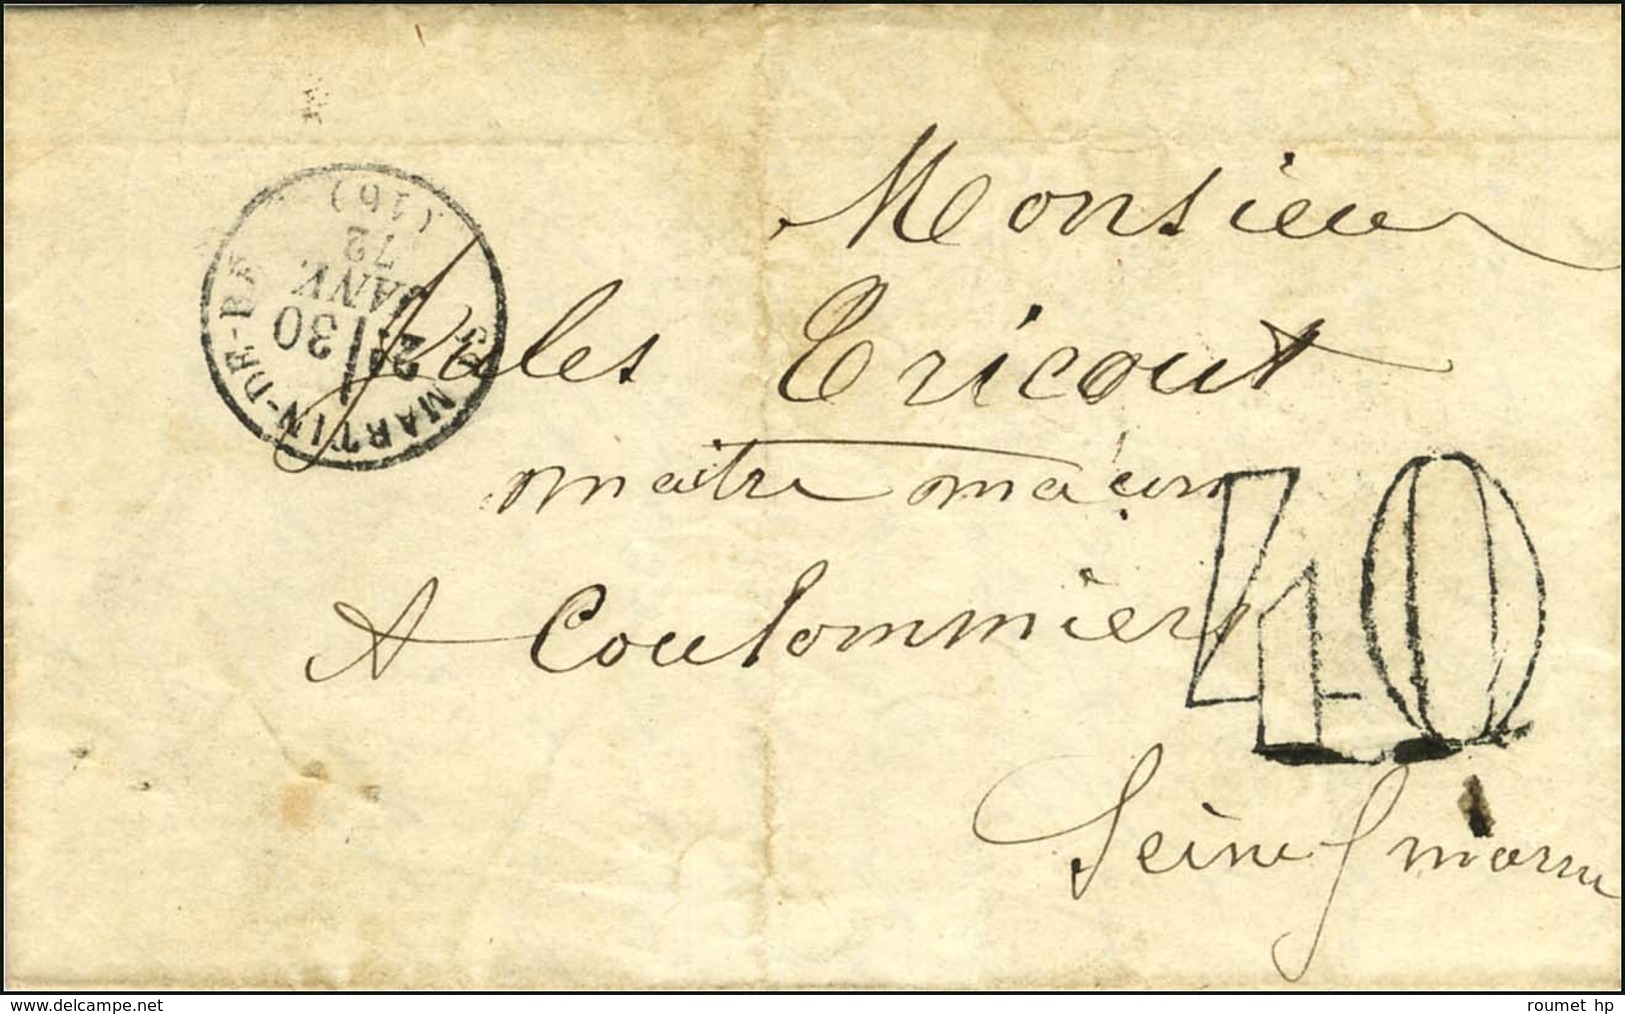 Monsieur
Jules Tricout
maitre maçon
A Coulommiers
Seine & marne
ST MARTIN-DE-RÉ
2E
30
JANV.
72
(16)
40
delcampe.net
roumet hp